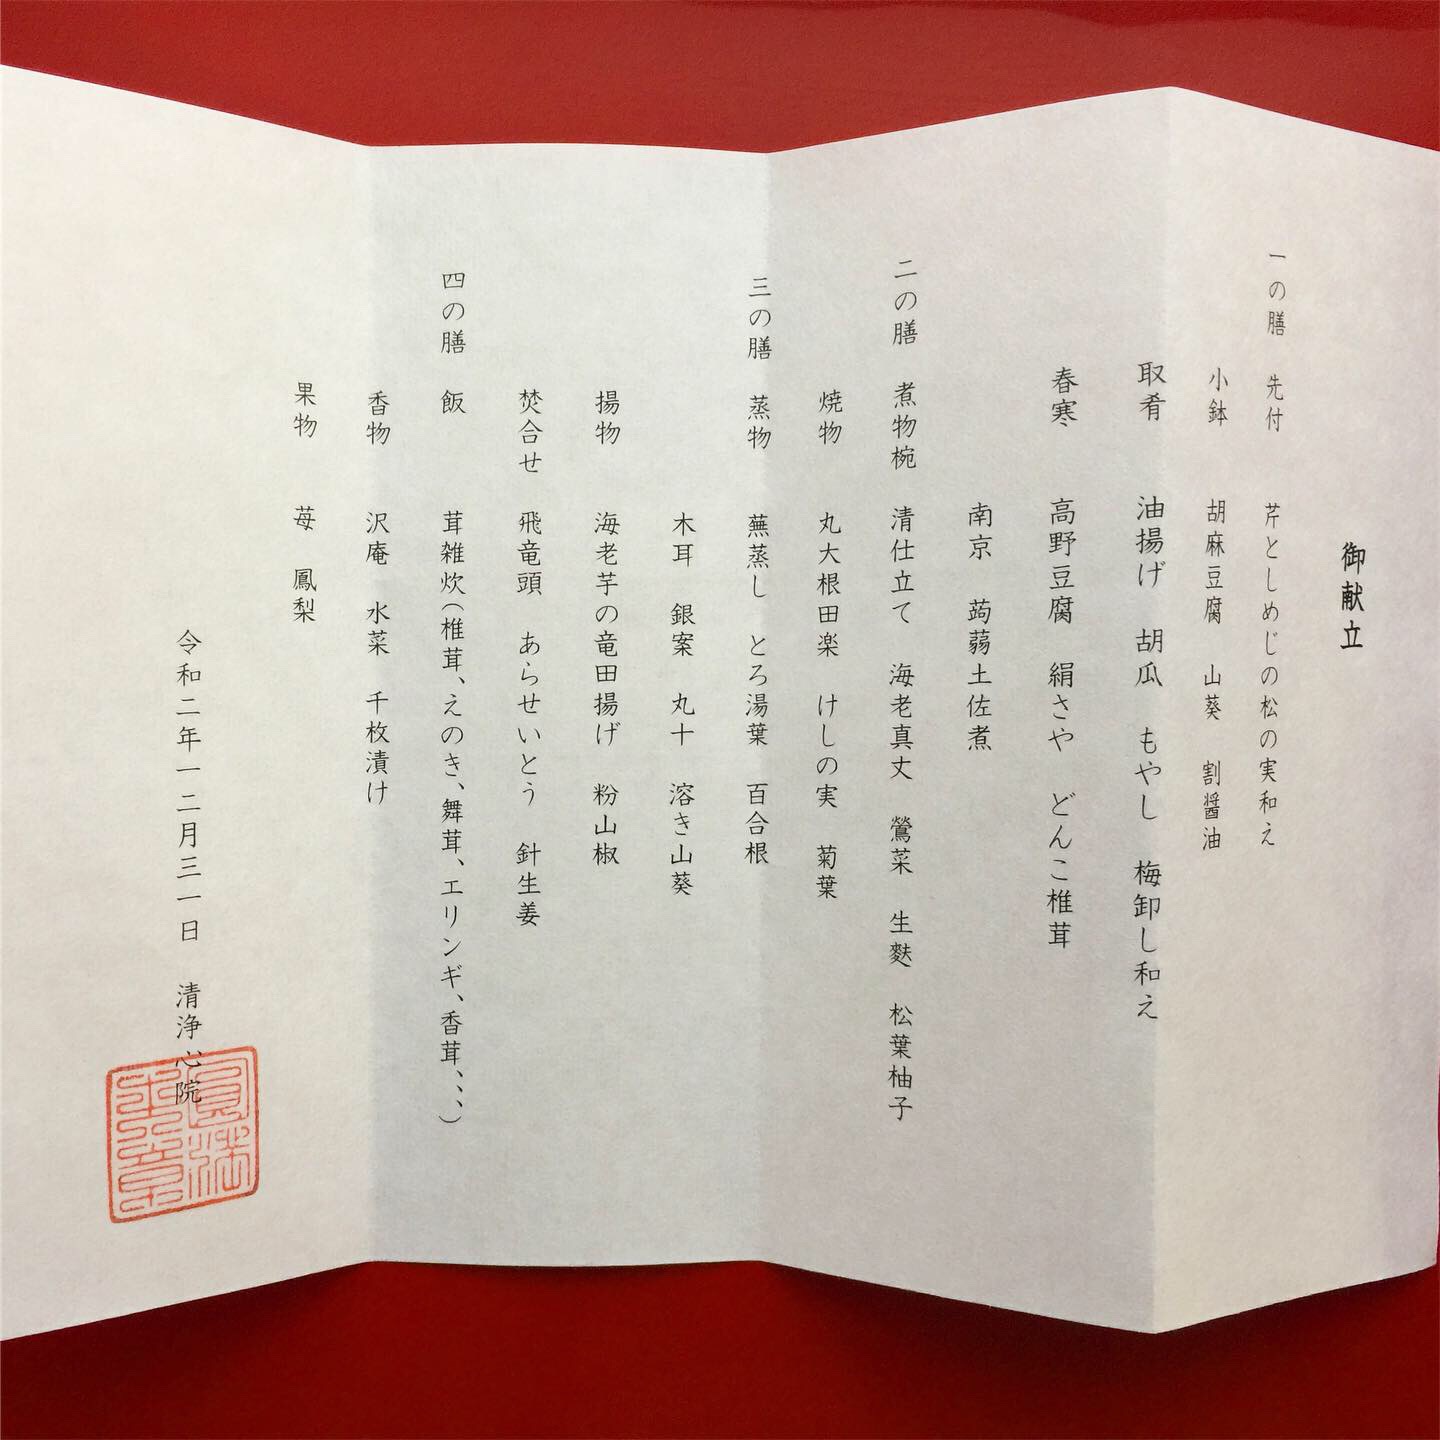 御献立
一の膳　先付　芹としめじの松の実和え
小鉢　胡麻豆腐　山葵　割醤油
取肴　油揚げ　胡瓜　もやし　梅卸し和え
春寒　高野豆腐　絹さや　どんこ椎茸
南京　蒟蒻土佐煮
二の膳　煮物椀　清仕立て　海老真丈　鶯菜　生麩　松葉柚子
焼物　丸大根田楽　けしの実　菊葉
三の膳　蒸物　蕪蒸し　とろ湯葉　百合根
木耳　銀案　丸十　溶き山葵
揚物　海老芋の竜田揚げ　粉山椒
焚合せ　飛竜頭　あらせいとう　針生姜
四の膳　飯　茸雑炊(椎茸、えのき、舞茸、エリンギ、香茸、、、)
香物　沢庵　水菜　千枚漬け
果物　苺　鳳梨
令和二年一二月三一日　清浄心院